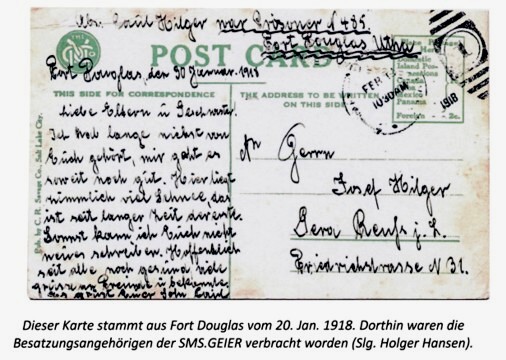 Abs. Paul Hilger war Prisoner № 485.
Fort Douglas Utha
POST CARD
Fort Douglas, den 30 Januar. 1918
THIS SIDE FOR CORRESPONDENCE
THE ADDRESS TO BE WRITTEN
ON THIS SIDE
FEB
1030AM
1918
Island Pos-
Mexico
Panama
Foreign - 2c.
Pub. by C. R. Savage Co., Salt Lake City.
Liebe Eltern u Geschwister
Ich hab lange nichts von
Euch gehört, mir geht es
soweit noch gut. Hier liegt
nimmlich viel Schnee, das
ist seit langer Zeit der erste.
Sonnst kann ich Euch nichts
neues schreiben. Hoffentlich
seit alle noch gesund viele
grüsse an Freunde u bekannte
es grüst Euer Sohn
An
Herrn
Josef Hilger
Gera Reuß j. L.
Friedrichstrasse N 31.
Dieser Karte stammt aus Fort Douglas vom 20. Jan. 1918. Dorthin waren die
Besatzungsangehörigen der SMS.GEIER verbracht worden (Slg. Holger Hansen).